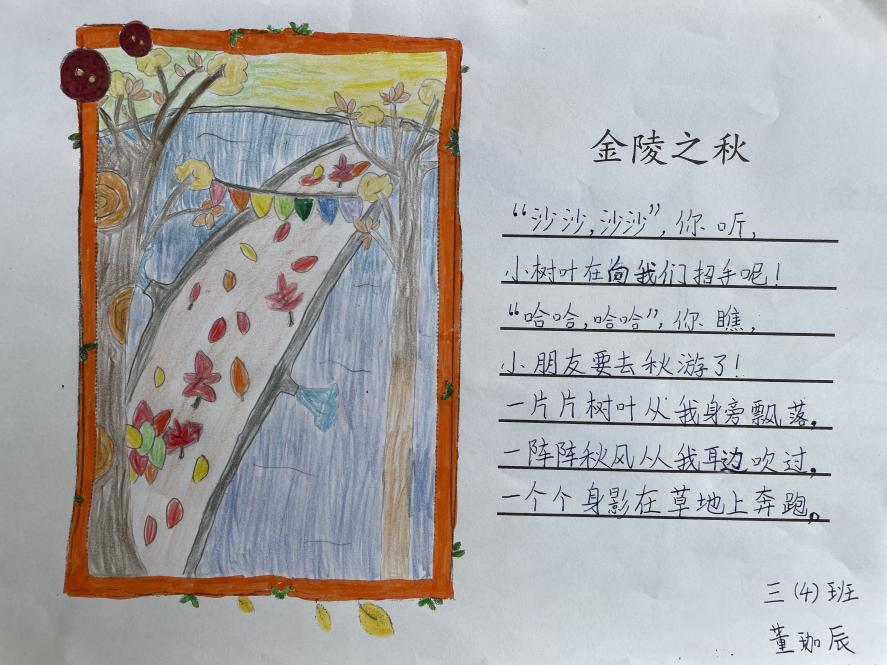 金陵之秋
“沙沙,沙沙”,你听,
小树叶在向我们招手呢!
“哈哈,哈哈”,你瞧,
小朋友要去秋游了!
一片片树叶从我身旁飘落。
一阵阵秋风从我耳边吹过。
一个个身影在草地上奔跑。
三(4)班
董珈辰